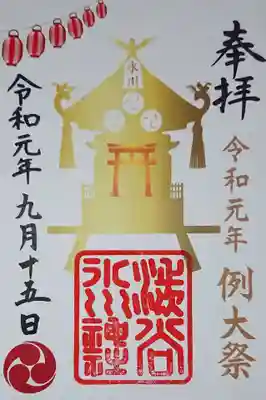 奉拝
令和元年 例大祭
氷川
渋谷
氷川神社
令和元年九月十五日